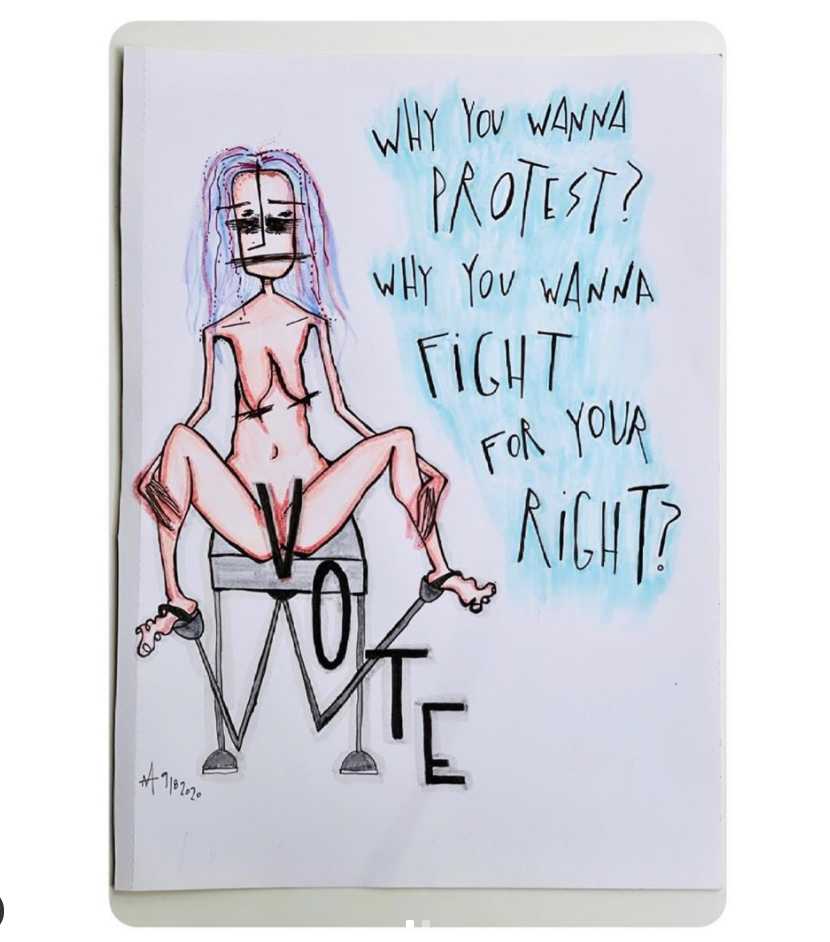 WHY YOU WANNA
PROTEST?
WHY YOU WANNA
FiGHT
FOR YOUR
RiGHT?
VOTE
9/8 2020